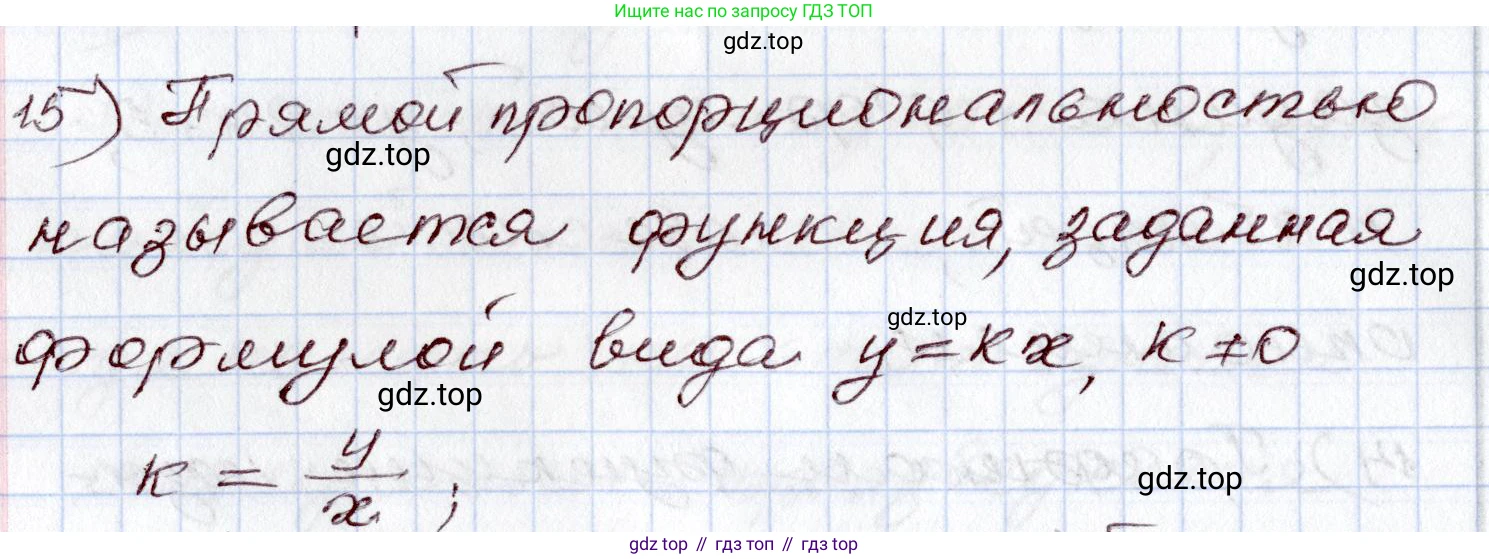 Ищите нас по запросу ГДЗ ТОП
gdz.top
15) Прямой пропорциональностью
gdz.top
называется функция, заданная
gdz.top
gdz.top
формулой вида y = kx, k ≠ 0
gdz.top
k = y/x;
gdz.top
gdz top // гдз топ // gdz top